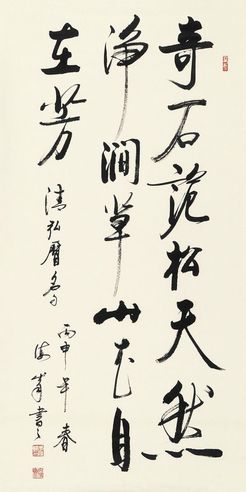 奇石苍松天然
净涧草山花自
在芳
清弘历句
丙申年春
书